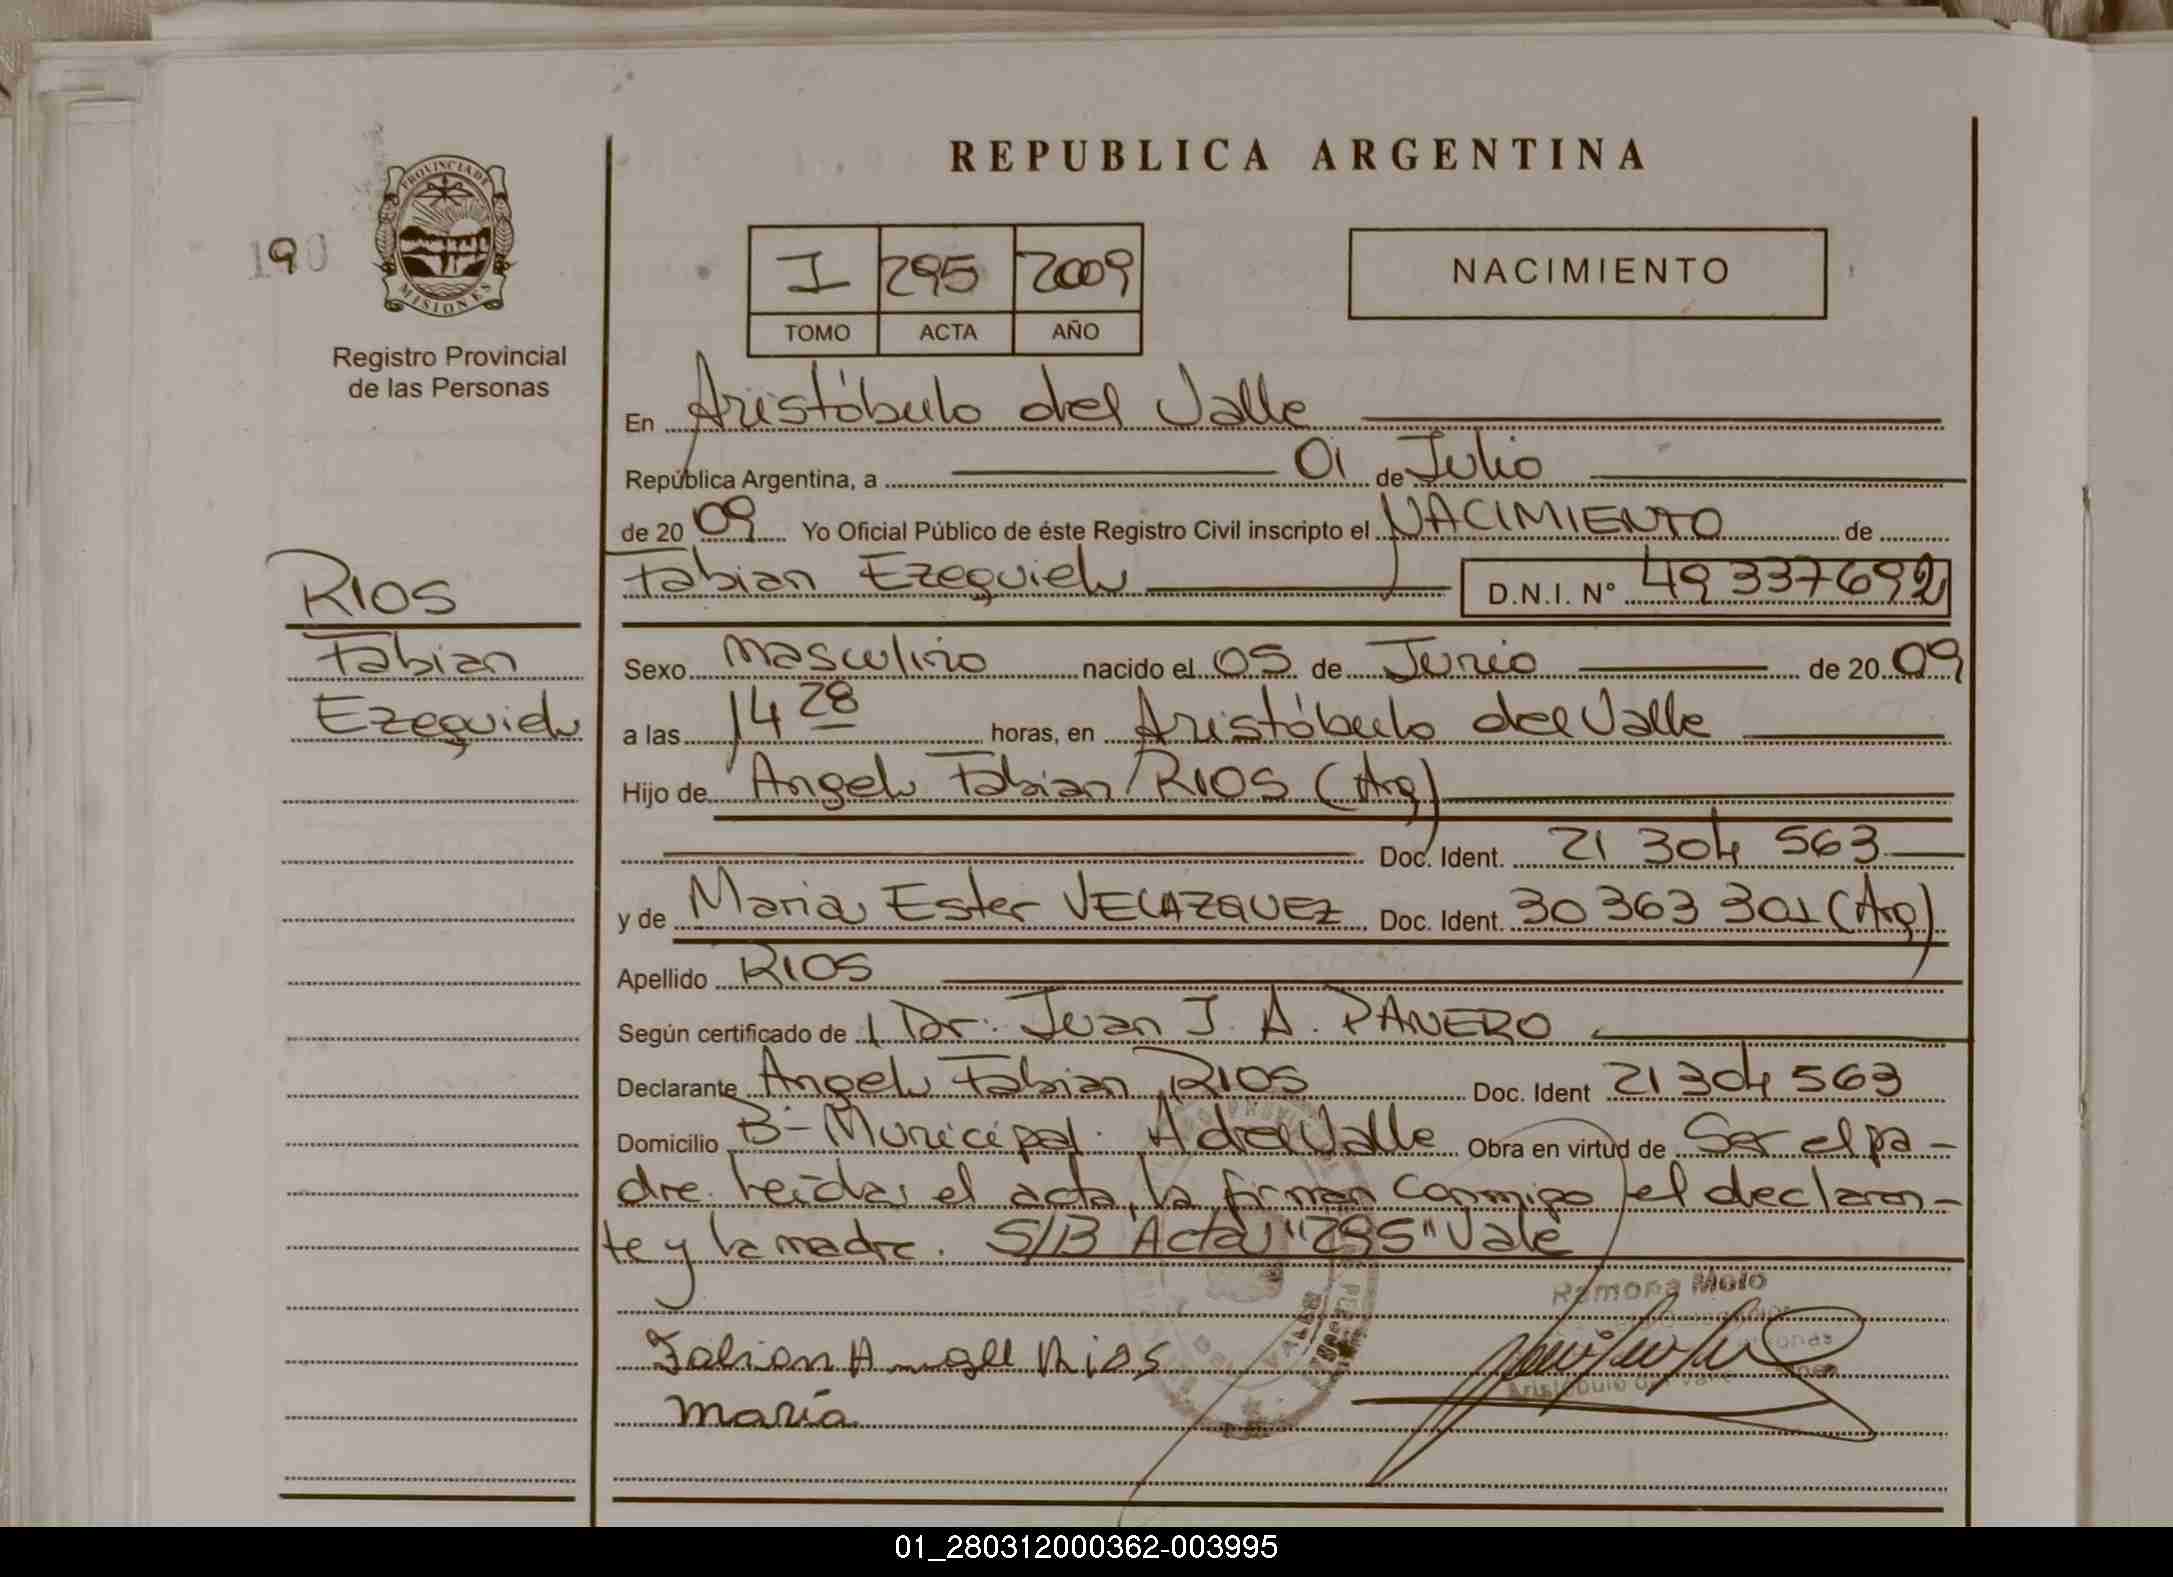 REPUBLICA ARGENTINA
PROVINCIA DE
MISIONES
190
Registro Provincial
de las Personas
I 295 2009
TOMO ACTA AÑO
NACIMIENTO
En Aristóbulo del Valle
República Argentina, a 01 de Julio
de 2009 Yo Oficial Público de éste Registro Civil inscripto el NACIMIENTO de
RIOS
Fabian
Ezequiel
Fabian Ezequiel D.N.I. N° 49337692
Sexo masculino nacido el 05 de Junio de 2009
a las 14 28 horas, en Aristóbulo del Valle
Hijo de Angel Fabian RIOS (Arg)
Doc. Ident. 21 304 563
y de Maria Ester VELAZQUEZ Doc. Ident. 30 363 301 (Arg)
Apellido RIOS
Según certificado de Dr. Juan J. A. PANERO
Declarante Angel Fabian RIOS Doc. Ident 21 304 563
Domicilio B- Municipal. A del Valle Obra en virtud de Ser el pa-
dre. Leida el acta, la firman conmigo el declaran-
te y la madre. S/B Acta "295" Vale
Ramona Melo
Aristóbulo del Valle
Fabian Angel Rios
maria
01_280312000362-003995